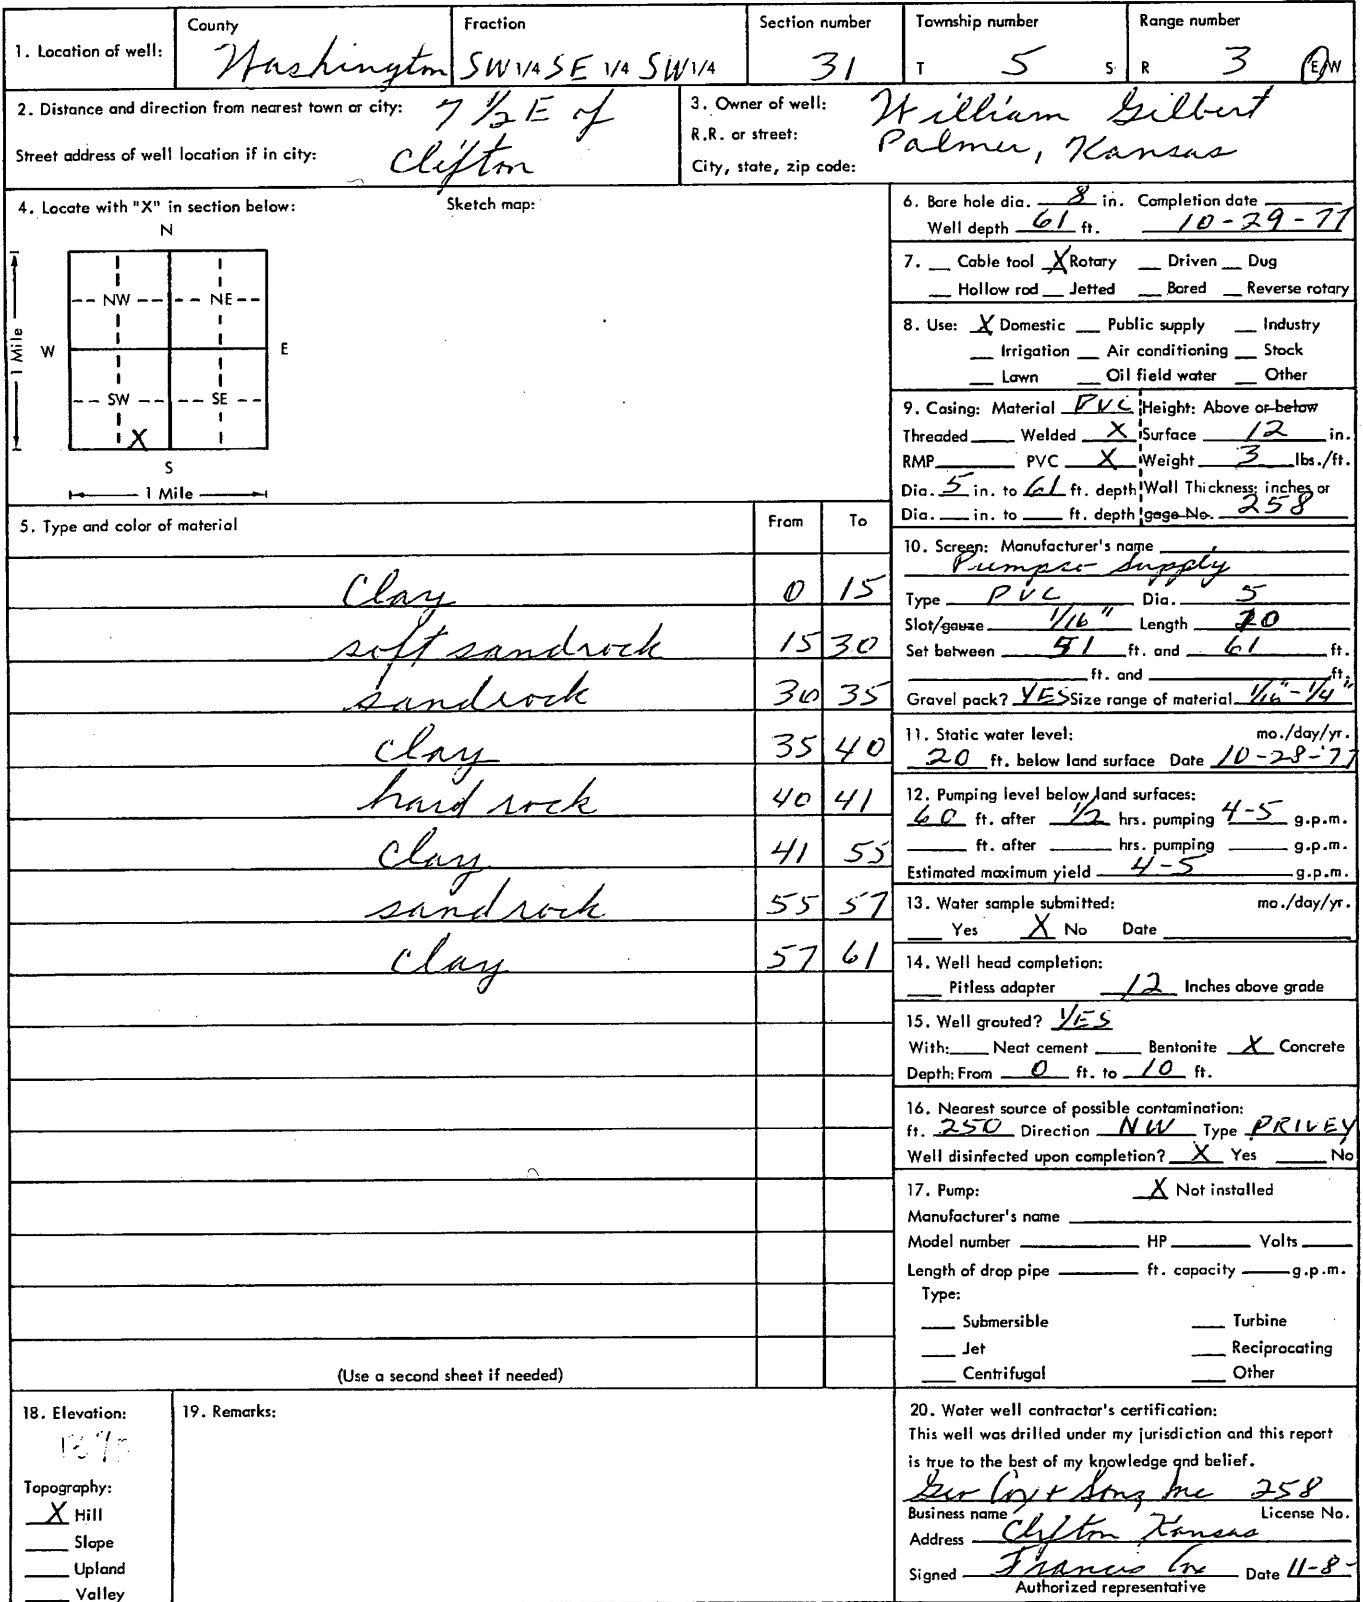 1. Location of well: County Washington Fraction SW 1/4 SE 1/4 SW 1/4 Section number 31 Township number T 5 S Range number R 3 E/W
2. Distance and direction from nearest town or city: 7 1/2 E of
Street address of well location if in city: Clifton
3. Owner of well: William Gilbert
R.R. or street: Palmer, Kansas
City, state, zip code:
4. Locate with "X" in section below: Sketch map:
N
NW NE
W E
SW SE
X
S
1 Mile
1 Mile
5. Type and color of material From To
Clay 0 15
soft sandrock 15 30
sandrock 30 35
clay 35 40
hard rock 40 41
clay 41 55
sandrock 55 57
clay 57 61
(Use a second sheet if needed)
6. Bore hole dia. 8 in. Completion date
Well depth 61 ft. 10-29-77
7. __ Cable tool X Rotary __ Driven __ Dug
__ Hollow rod __ Jetted __ Bored __ Reverse rotary
8. Use: X Domestic __ Public supply __ Industry
__ Irrigation __ Air conditioning __ Stock
__ Lawn __ Oil field water __ Other
9. Casing: Material PVC Height: Above or below
Threaded ___ Welded X Surface 12 in.
RMP ___ PVC X Weight 3 lbs./ft.
Dia. 5 in. to 61 ft. depth Wall Thickness: inches or
Dia. __ in. to __ ft. depth gage No. 258
10. Screen: Manufacturer's name
Supply
Type PVC Dia. 5
Slot/gauze 1/16" Length
Set between 51 ft. and 61 ft.
___ ft. and ___ ft.
Gravel pack? YES Size range of material 1/16"-1/4"
11. Static water level: mo./day/yr.
20 ft. below land surface Date 10-28-77
12. Pumping level below land surfaces:
60 ft. after 1/2 hrs. pumping 4-5 g.p.m.
___ ft. after ___ hrs. pumping ___ g.p.m.
Estimated maximum yield 4-5 g.p.m.
13. Water sample submitted: mo./day/yr.
__ Yes X No Date
14. Well head completion:
__ Pitless adapter 12 Inches above grade
15. Well grouted? YES
With: ___ Neat cement ___ Bentonite X Concrete
Depth: From 0 ft. to 10 ft.
16. Nearest source of possible contamination:
ft. 250 Direction NW Type PRIVEY
Well disinfected upon completion? X Yes ___ No
17. Pump: X Not installed
Manufacturer's name
Model number ___ HP ___ Volts ___
Length of drop pipe ___ ft. capacity ___ g.p.m.
Type:
__ Submersible __ Turbine
__ Jet __ Reciprocating
__ Centrifugal __ Other
18. Elevation:
Topography:
X Hill
__ Slope
__ Upland
__ Valley
19. Remarks:
20. Water well contractor's certification:
This well was drilled under my jurisdiction and this report
is true to the best of my knowledge and belief.
& Sons Inc 258
Business name License No.
Address Clifton Kansas
Signed Francis Date 11-8-
Authorized representative